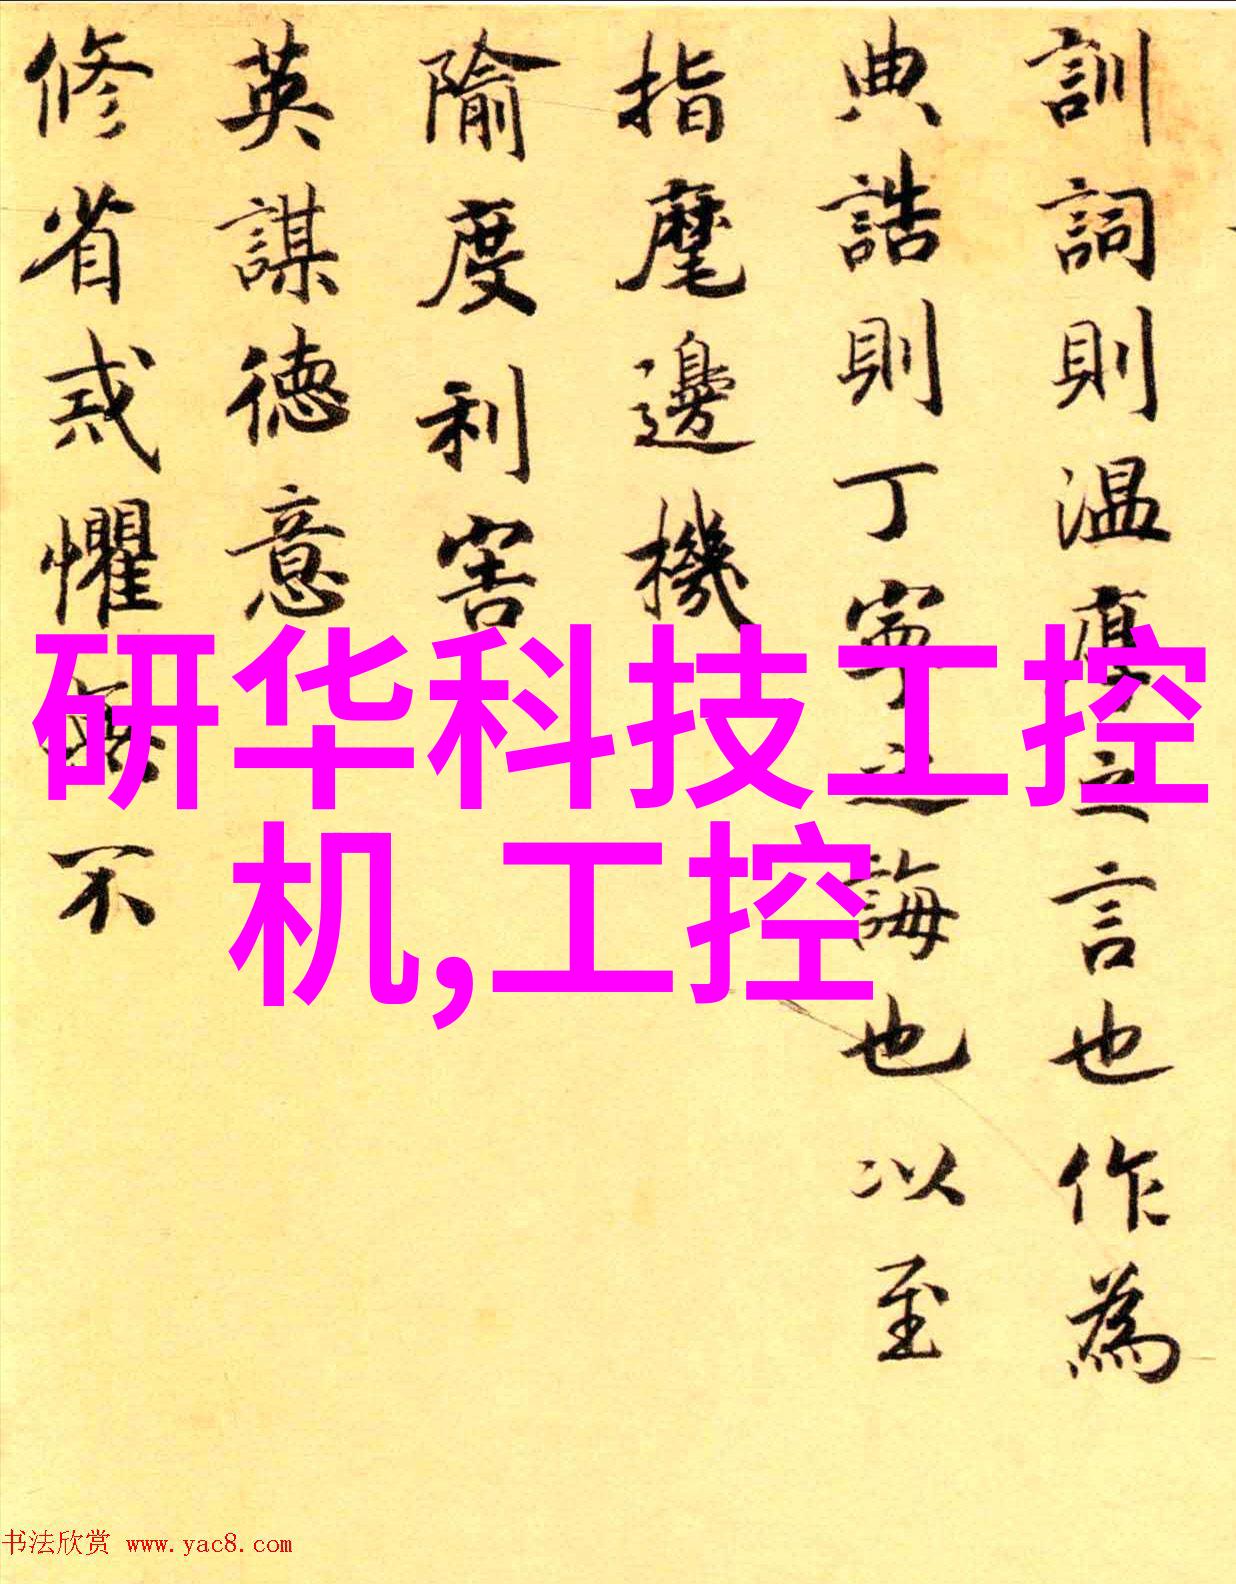 訓詞則温厚之言也作為
典誥則丁寧之誨也以至
指麾邊機
隃度利害
英謀德意
修省戒懼無不
研华科技工控
机,工控
书法欣赏 www.yac8.com